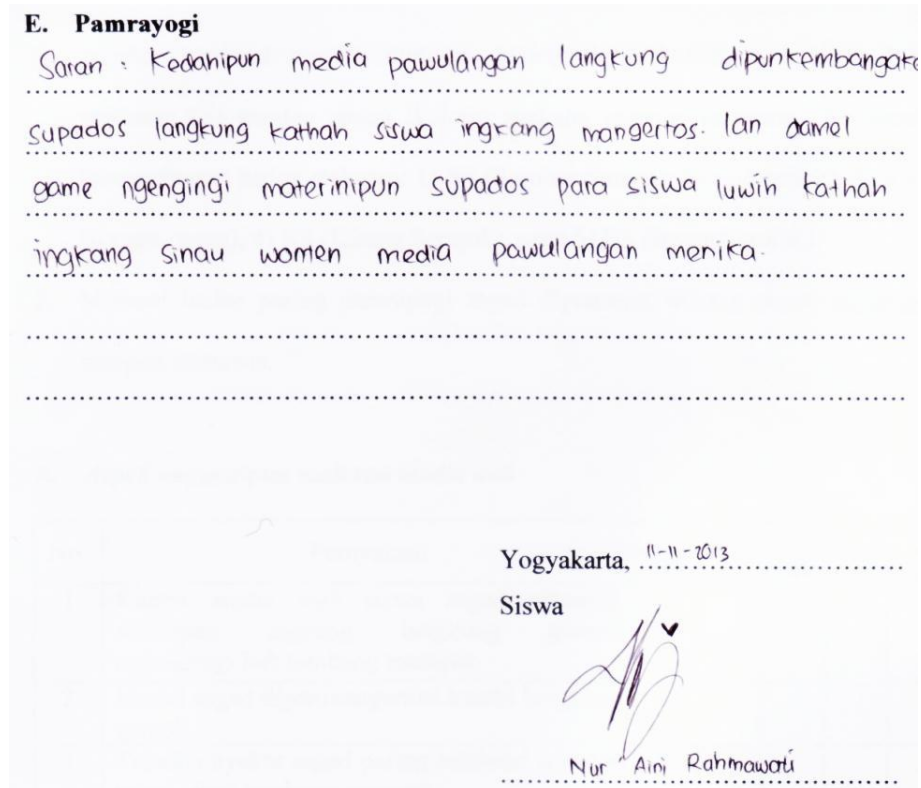 E. Pamrayogi
Saran : Kedahipun media pawulangan langkung dipunkembangake
supados langkung kathah siswa ingkang mangertos. lan damel
game ngengingi materinipun supados para siswa luwih kathah
ingkang sinau wonten media pawulangan menika.
Yogyakarta, 11-11-2013
Siswa
Nur Aini Rahmawati